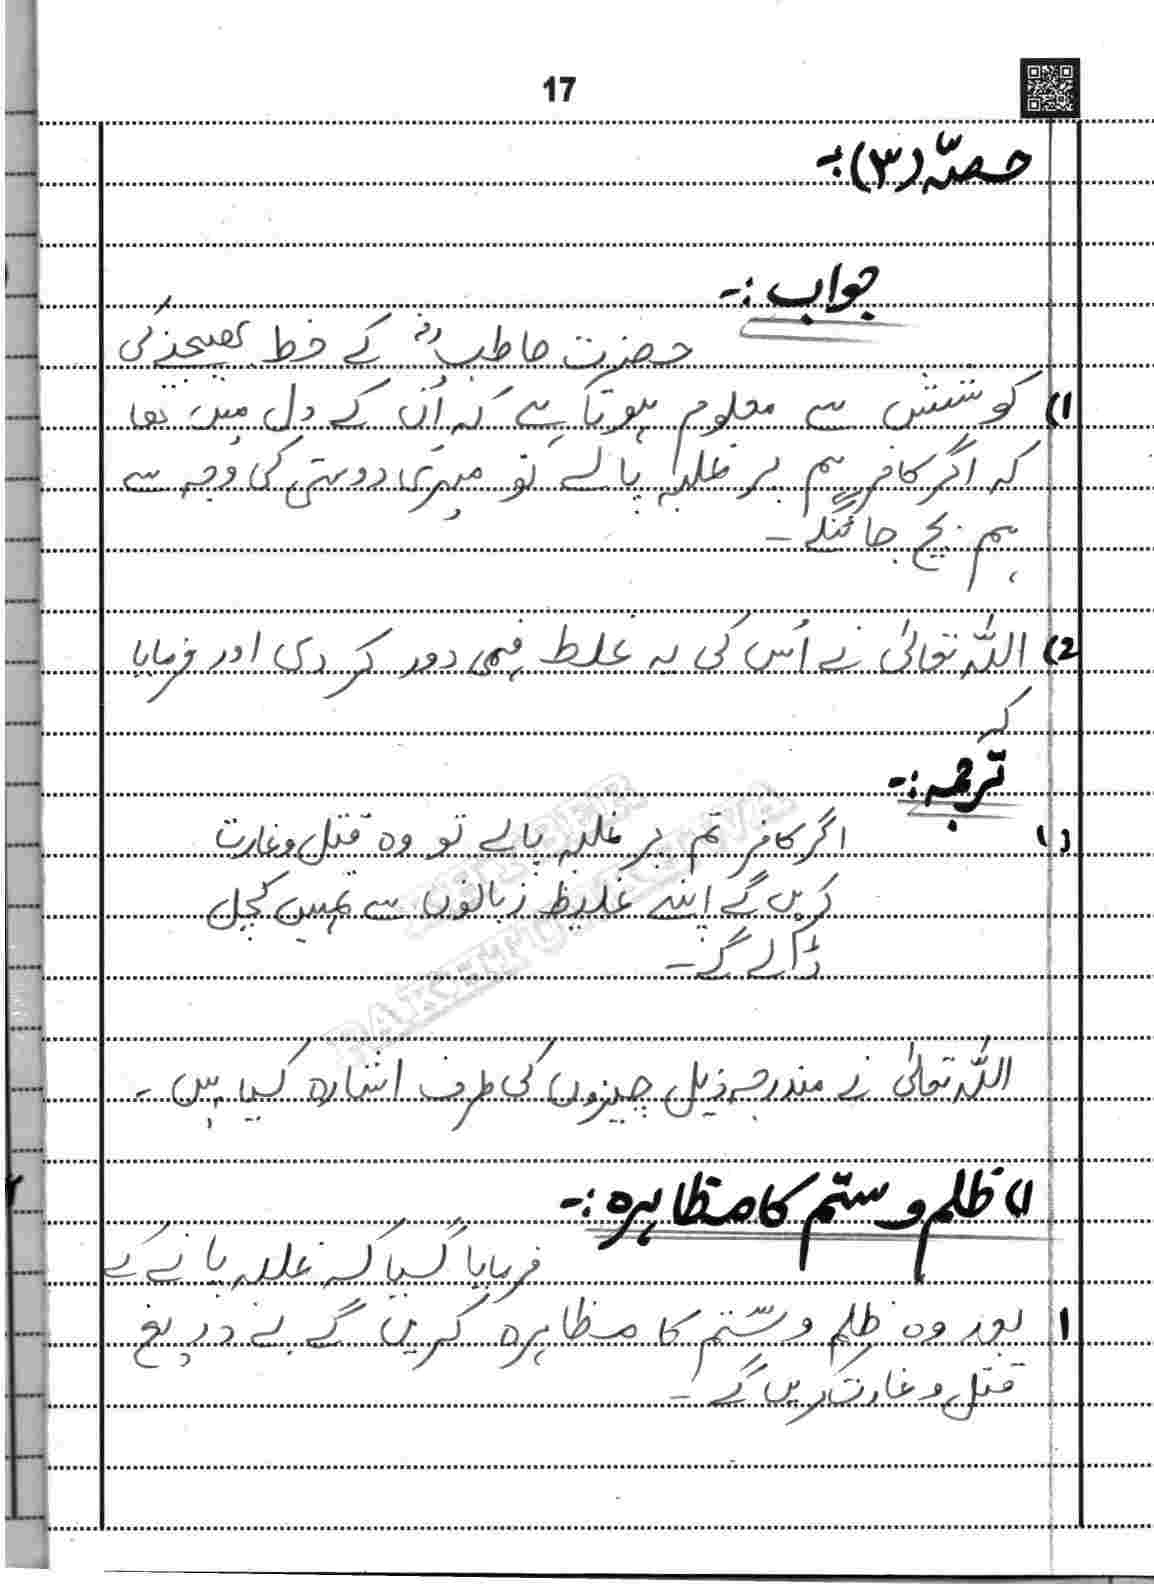 17
حصہ (۳):-
جواب :-
حضرت حاطبؓ کے خط بھیجنے کی
1) کوشش سے معلوم ہوتا ہے کہ اُن کے دل میں تھا
کہ اگر کافر ہم پر غلبہ پالے تو میری دوستی کی وجہ سے
ہم بچ جائنگے -
2) اللہ تعالیٰ نے اُس کی یہ غلط فہمی دور کر دی اور فرمایا
کہ
ترجمہ :-
1) اگر کافر تم پر غلبہ پالے تو وہ قتل و غارت
کریں گے اپنے غلیظ زبانوں سے تمہیں کچل
ڈالے گے -
اللہ تعالیٰ نے مندرجہ ذیل چیزوں کی طرف اشارہ کیا ہیں -
1) ظلم و ستم کا مظاہرہ :-
فرمایا گیا کہ غلبہ پانے کے
1 بعد وہ ظلم و ستم کا مظاہرہ کریں گے بے دریغ
قتل و غارت کریں گے -